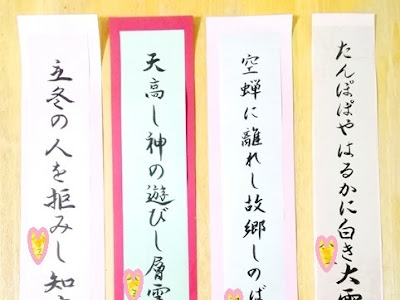 たんぽぽやはるかに白き大雪
空蝉に離れし故郷しのば
天高し神の遊びし層雲
立冬の人を拒みし知床